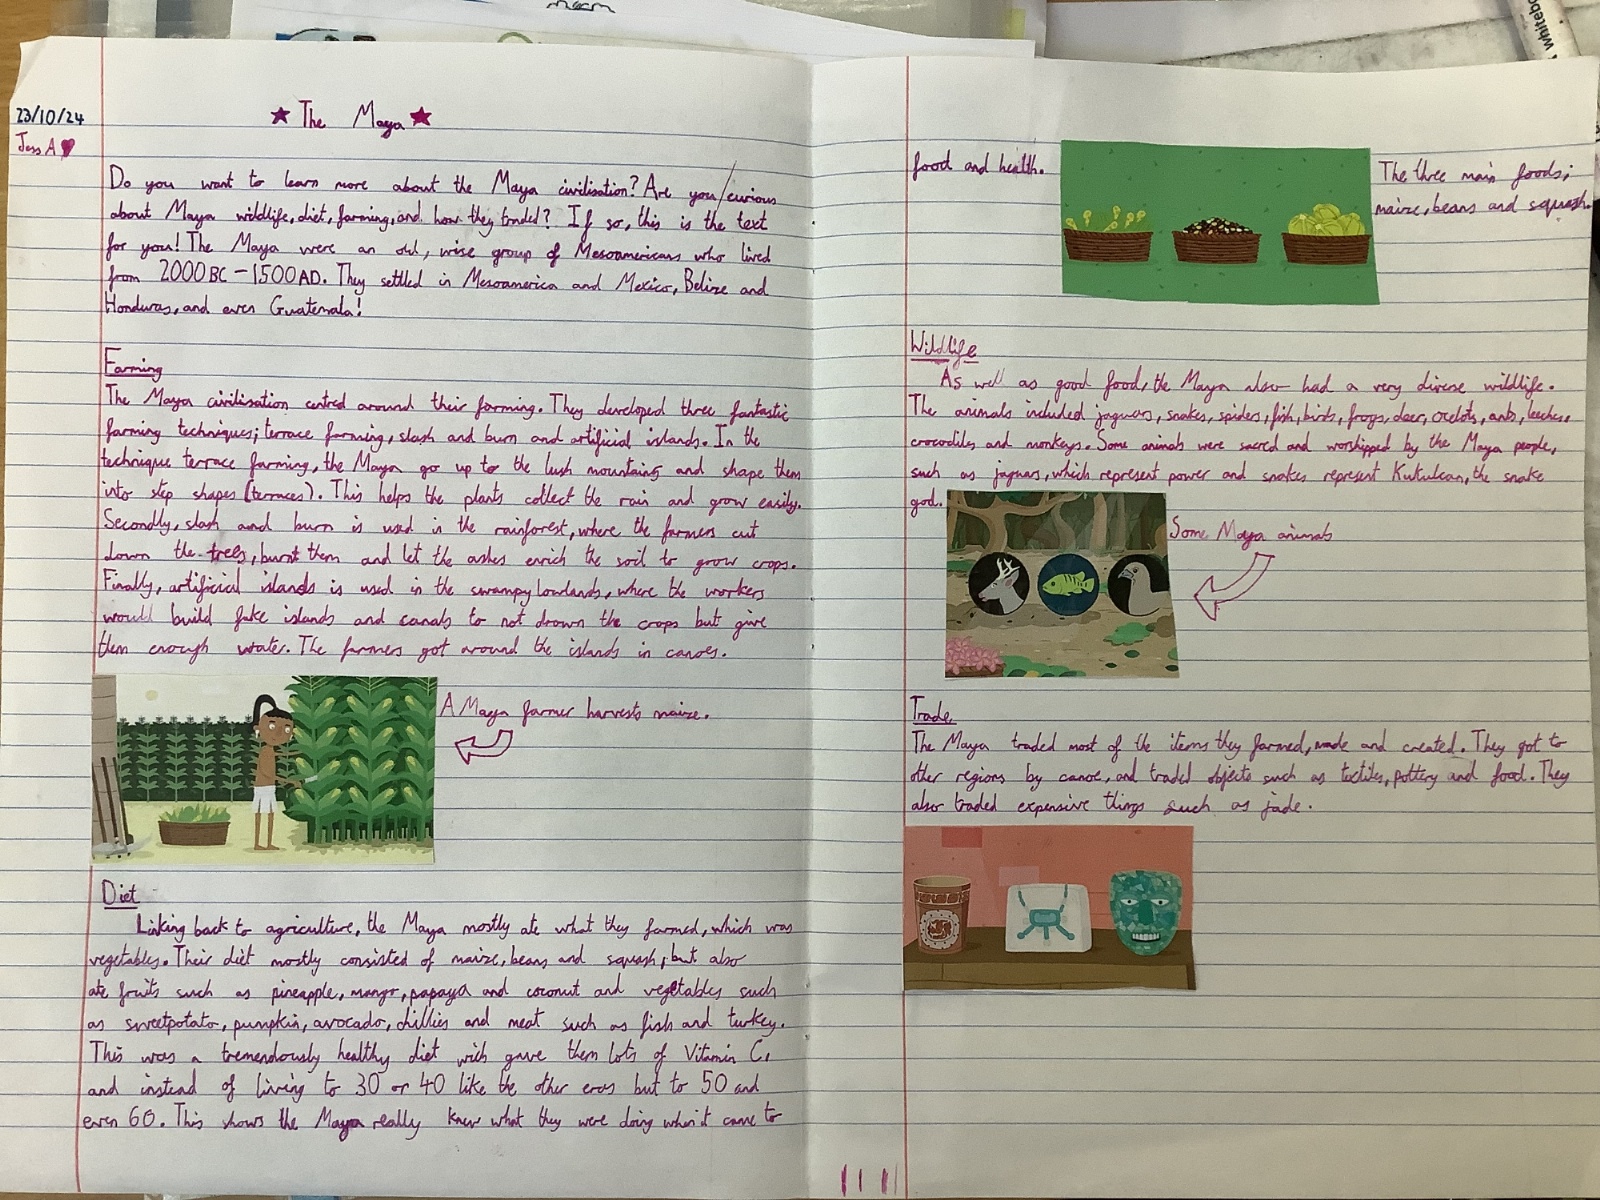 23/10/24
Jess A
The Maya
Do you want to learn more about the Maya civilisation? Are you/curious
about Maya wildlife, diet, farming, and how they traded? If so, this is the text
for you! The Maya were an old, wise group of Mesoamericans who lived
from 2000BC - 1500AD. They settled in Mesoamerica and Mexico, Belize and
Honduras, and even Guatemala!
Farming
The Maya civilisation centred around their farming. They developed three fantastic
farming techniques; terrace farming, slash and burn and artificial islands. In the
technique terrace farming, the Maya go up to the lush mountains and shape them
into step shapes (terraces). This helps the plants collect the rain and grow easily.
Secondly, slash and burn is used in the rainforest, where the farmers cut
down the trees, burnt them and let the ashes enrich the soil to grow crops.
Finally, artificial islands is used in the swampy lowlands, where the workers
would build fake islands and canals to not drown the crops but give
them enough water. The farmers got around the islands in canoes.
A Maya farmer harvests maize.
Diet
Linking back to agriculture, the Maya mostly ate what they farmed, which was
vegetables. Their diet mostly consisted of maize, beans and squash, but also
ate fruits such as pineapple, mango, papaya and coconut and vegetables such
as sweetpotato, pumpkin, avocado, chillies and meat such as fish and turkey.
This was a tremendously healthy diet wich gave them lots of Vitamin C,
and instead of living to 30 or 40 like the other eras but to 50 and
even 60. This shows the Maya really knew what they were doing when it came to
food and health.
The three main foods;
maize, beans and squash.
Wildlife
As well as good food, the Maya also had a very diverse wildlife.
The animals included jaguars, snakes, spiders, fish, birds, frogs, deer, ocelots, ants, leeches,
crocodiles and monkeys. Some animals were sacred and worshipped by the Maya people,
such as jaguars, which represent power and snakes represent Kukulcan, the snake
god.
Some Maya animals
Trade
The Maya traded most of the items they farmed, made and created. They got to
other regions by canoe, and traded objects such as textiles, pottery and food. They
also traded expensive things such as jade.